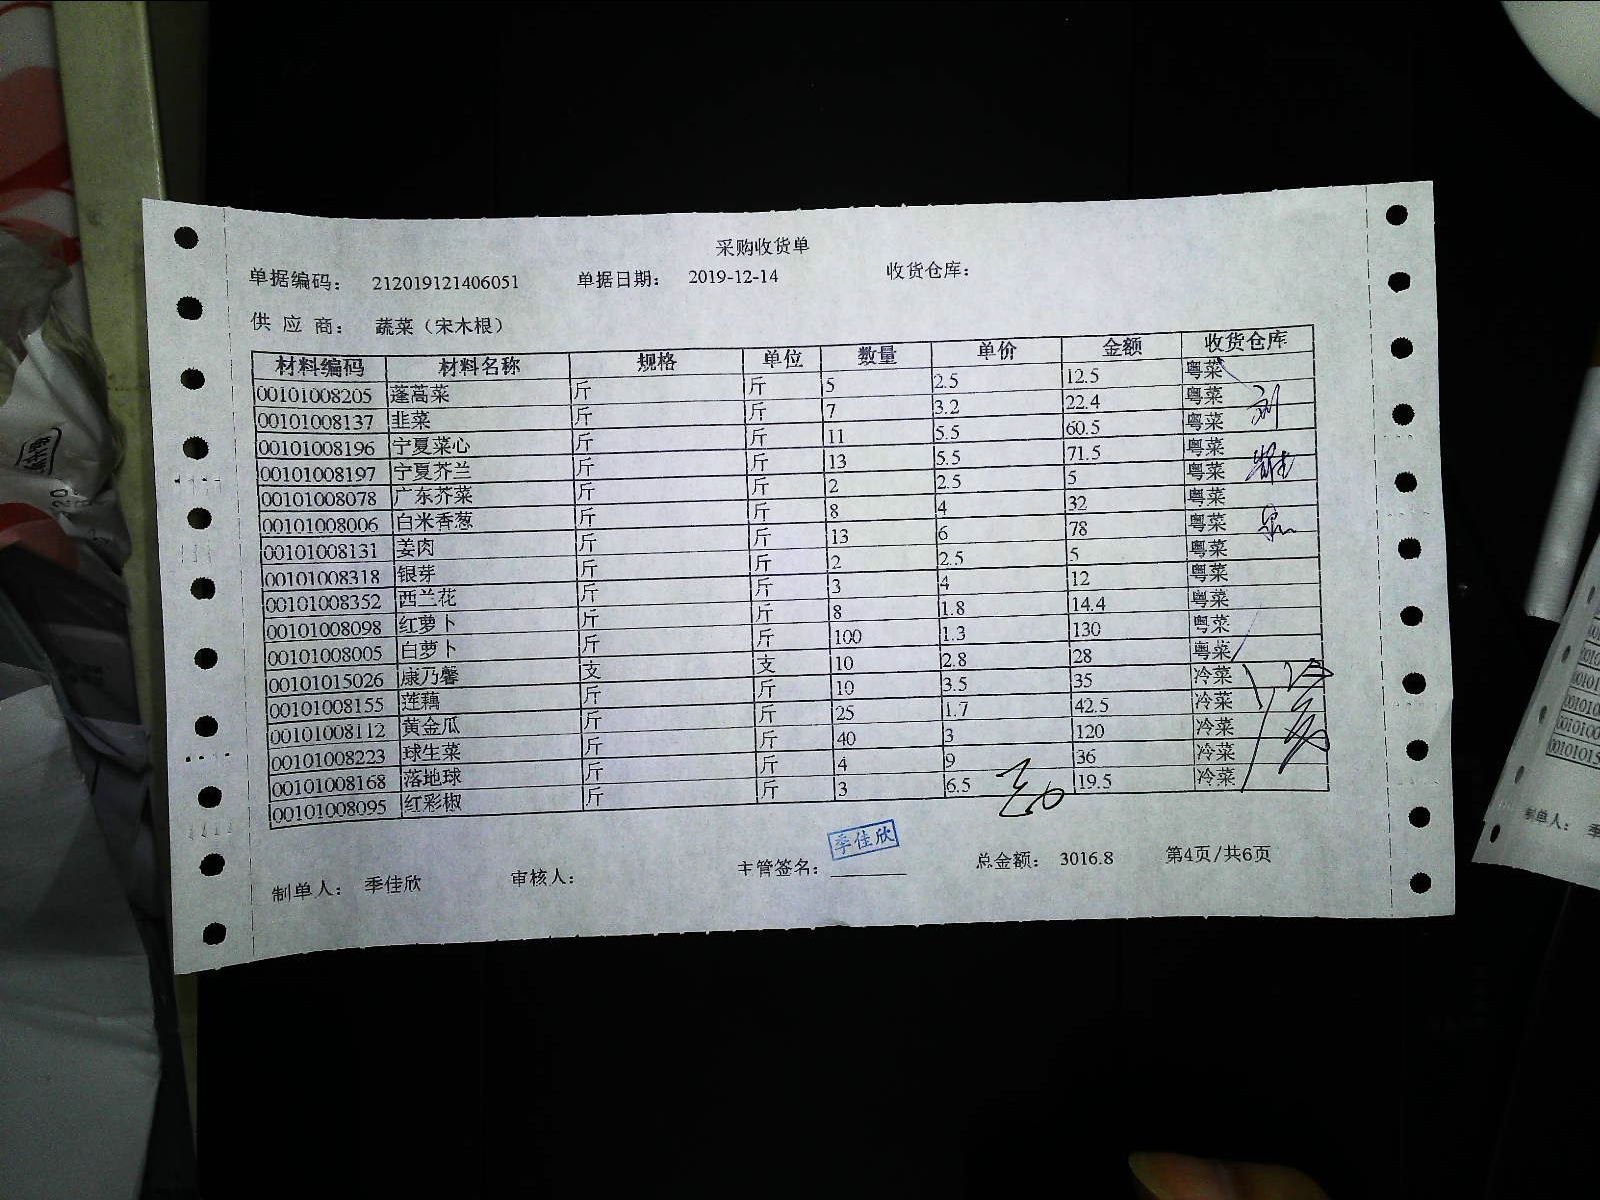 采购收货单
单据编码： 212019121406051 单据日期： 2019-12-14 收货仓库：
供 应 商： 蔬菜（宋木根）
材料编码 材料名称 规格 单位 数量 单价 金额 收货仓库
00101008205 蓬蒿菜 斤 斤 5 2.5 12.5 粤菜
00101008137 韭菜 斤 斤 7 3.2 22.4 粤菜
00101008196 宁夏菜心 斤 斤 11 5.5 60.5 粤菜
00101008197 宁夏芥兰 斤 斤 13 5.5 71.5 粤菜
00101008078 广东芥菜 斤 斤 2 2.5 5 粤菜
00101008006 白米香葱 斤 斤 8 4 32 粤菜
00101008131 姜肉 斤 斤 13 6 78 粤菜
00101008318 银芽 斤 斤 2 2.5 5 粤菜
00101008352 西兰花 斤 斤 3 4 12 粤菜
00101008098 红萝卜 斤 斤 8 1.8 14.4 粤菜
00101008005 白萝卜 斤 斤 100 1.3 130 粤菜
00101015026 康乃馨 支 支 10 2.8 28 粤菜
00101008155 莲藕 斤 斤 10 3.5 35 冷菜
00101008112 黄金瓜 斤 斤 25 1.7 42.5 冷菜
00101008223 球生菜 斤 斤 40 3 120 冷菜
00101008168 落地球 斤 斤 4 9 36 冷菜
00101008095 红彩椒 斤 斤 3 6.5 19.5 冷菜
制单人： 季佳欣 审核人： 主管签名： 季佳欣 总金额： 3016.8 第4页/共6页
制单人：